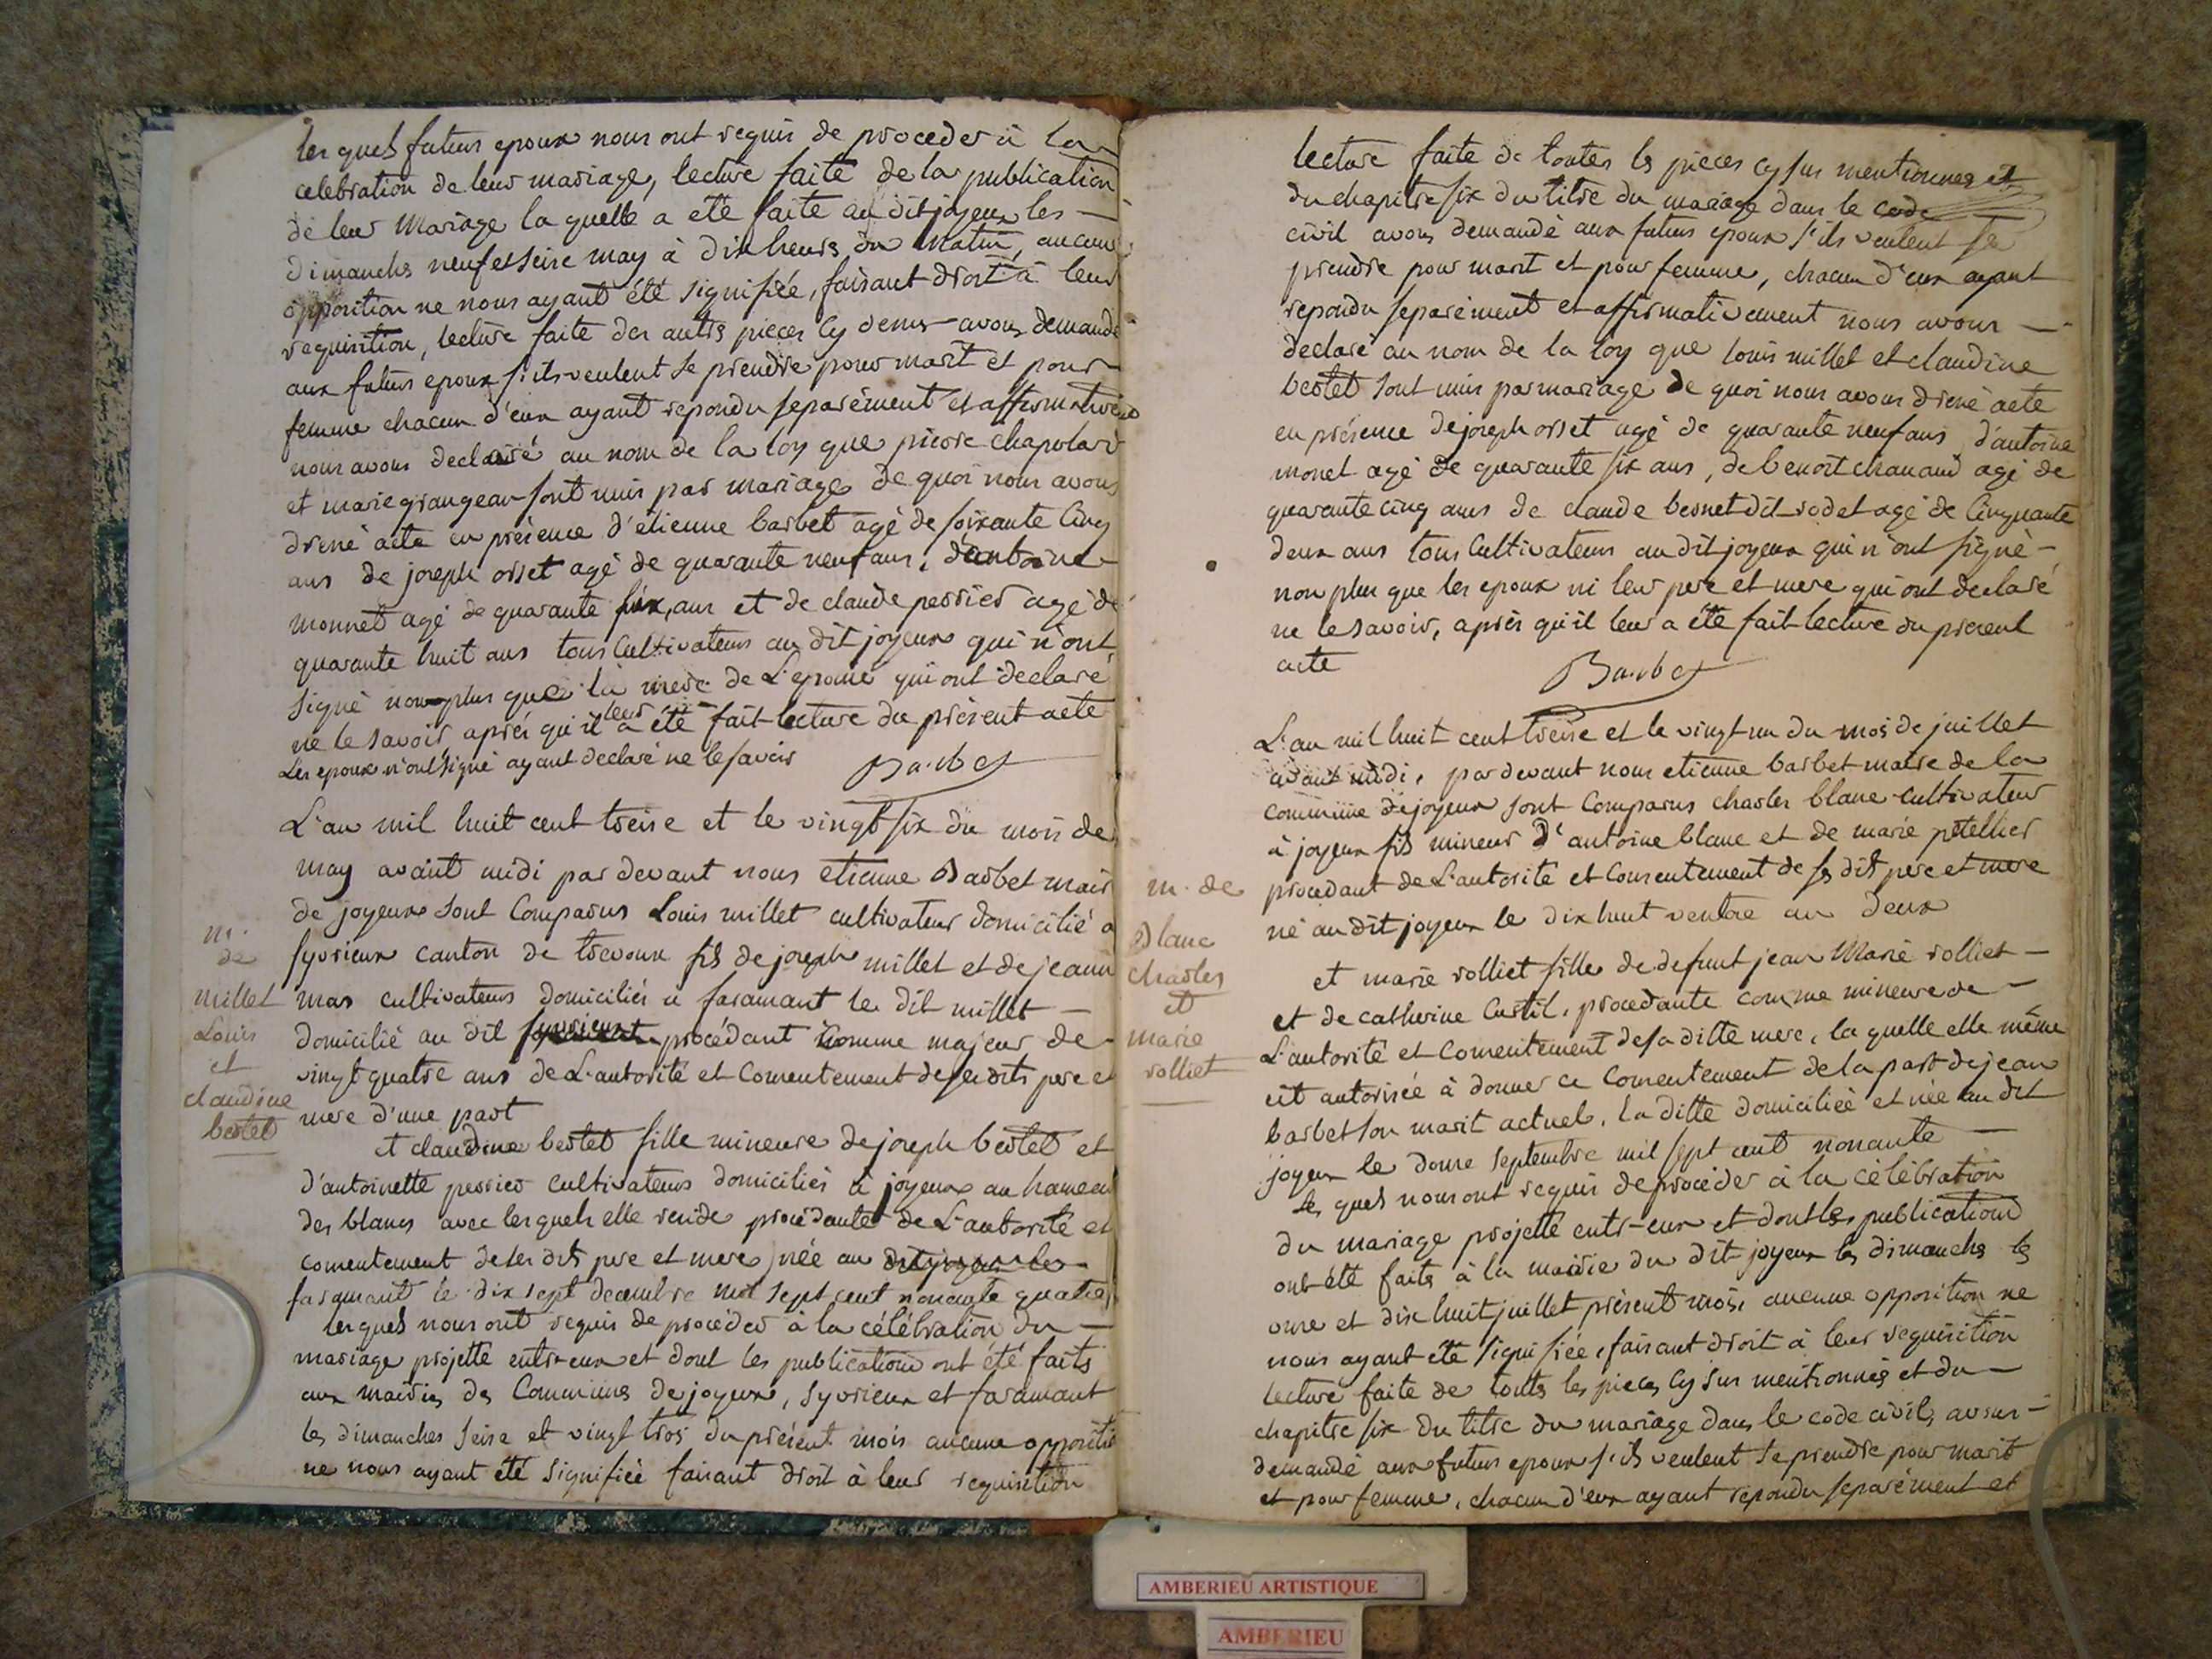 les quels futurs epoux nous ont requis de proceder à la
celebration de leur mariage, lecture faite de la publication
de leur mariage la quelle a eté faite au dit joyeux les —
dimanches neuf et seise may à dix heures du matin, aucune
opposition ne nous ayant été signifiée, faisant droit à leur
requisition, lecture faite des autres pieces cy denus avons demandé
aux futurs epoux s'ils veulent se prendre pour marit et pour
femme chacun d'eux ayant repondu separément et affirmativemt
nous avons declaré au nom de la loy que pierre chapolard
et marie grangean sont unis par mariage de quoi nous avons
dréné acte en présence d'étienne barbet agé de soixante cinq
ans de joseph orset agé de quarante neuf ans, d'antoine
monnet agé de quarante six ans et de claude perrier agé de
quarante huit ans tous cultivateurs au dit joyeux qui n'ont
signé non plus que la mere de L'epouse qui ont declaré
ne le savoir aprés qu'il leur a été fait lecture du présent acte
Les epoux n'ont signé ayant declaré ne le savoir Barbet
L'an mil huit cent treise et le vingt six du mois de
may avant midi par devant nous etienne Barbet maire
de joyeux sont comparus Louis millet cultivateur domicilié a
syvrieux canton de trevoux fils de joseph millet et de jeanne
mas cultivateurs domiciliés a faramant le dit millet —
domicilié au dit syvrieux procédant comme majeur de
vingt quatre ans de L'autorité et consentement de ses dits pere et
mere d'une part
m.
de
millet
Louis
et
claudine
bertet
et claudine bertet fille mineure de joseph bertet et
d'antoinette perrier cultivateurs domiciliés à joyeux au hameau
des blancs avec lesquels elle reside procédante de L'autorité et
consentement de ses dits pere et mere née au dit joyeux le
faramant le dix sept decembre mil sept cent nonante quatre
lesquels nous ont requis de procéder à la célébration du —
mariage projetté entr-eux et dont les publications ont été faits
aux mairies des Communes de joyeux, syvrieux et faramant
les dimanches seise et vingt trois du présent mois aucune opposition
ne nous ayant été signifiée faisant droit à leur requisition
lecture faite de toutes les pieces cy sus mentionnes et
du chapitre six du titre du mariage dans le code —
civil avons demandé aux futurs epoux s'ils veulent se
prendre pour marit et pour femme, chacun d'eux ayant
repondu separément et affirmativement nous avons —
declaré au nom de la loy que louis millet et claudine
bertet sont unis par mariage de quoi nous avons dréné acte
en présence de joseph orset agé de quarante neuf ans d'antoine
monet agé de quarante six ans, de benoit chanaud agé de
quarante cinq ans de claude bernet dit rodet agé de Cinquante
deux ans tous cultivateurs au dit joyeux qui n'ont signé —
non plus que les epoux ni leur pere et mere qui ont declaré
ne le savoir, aprés qu'il leur a été fait lecture du present
acte Barbet
L'an mil huit cent treise et le vingt un du mois de juillet
avant midi, par devant nous etienne barbet maire de la
commune de joyeux sont comparus charles blanc cultivateur
à joyeux fils mineur d'antoine blanc et de marie petellier
procedant de L'autorité et consentement de ses dits pere et mere
né au dit joyeux le dix huit ventose an deux
m. de
Blanc
charles
et
marie
rolliet
et marie rolliet fille de defunt jean Marie rolliet —
et de catherine Curtil, procedante comme mineure de —
L'autorité et consentement de sa ditte mere, la quelle elle même
est autorisée à donner ce consentement de la part de jean
barbet son marit actuel, la ditte domiciliée et née au dit
joyeux le douse septembre mil sept cent nonante —
les quels nous ont requis de procéder à la célébration
du mariage projetté entr-eux et dont les publications
ont été faits à la mairie du dit joyeux les dimanches les
onse et dix huit juillet présent mois, aucune opposition ne
nous ayant eté signifiée, faisant droit à leur requisition
lecture faite de touts les pieces cy sus mentionnés et du —
chapitre six du titre du mariage dans le code civil, avons —
demandé aux futurs epoux s'ils veulent se prendre pour marit
et pour femme, chacun d'eux ayant repondu separément et
AMBERIEU ARTISTIQUE
AMBERIEU